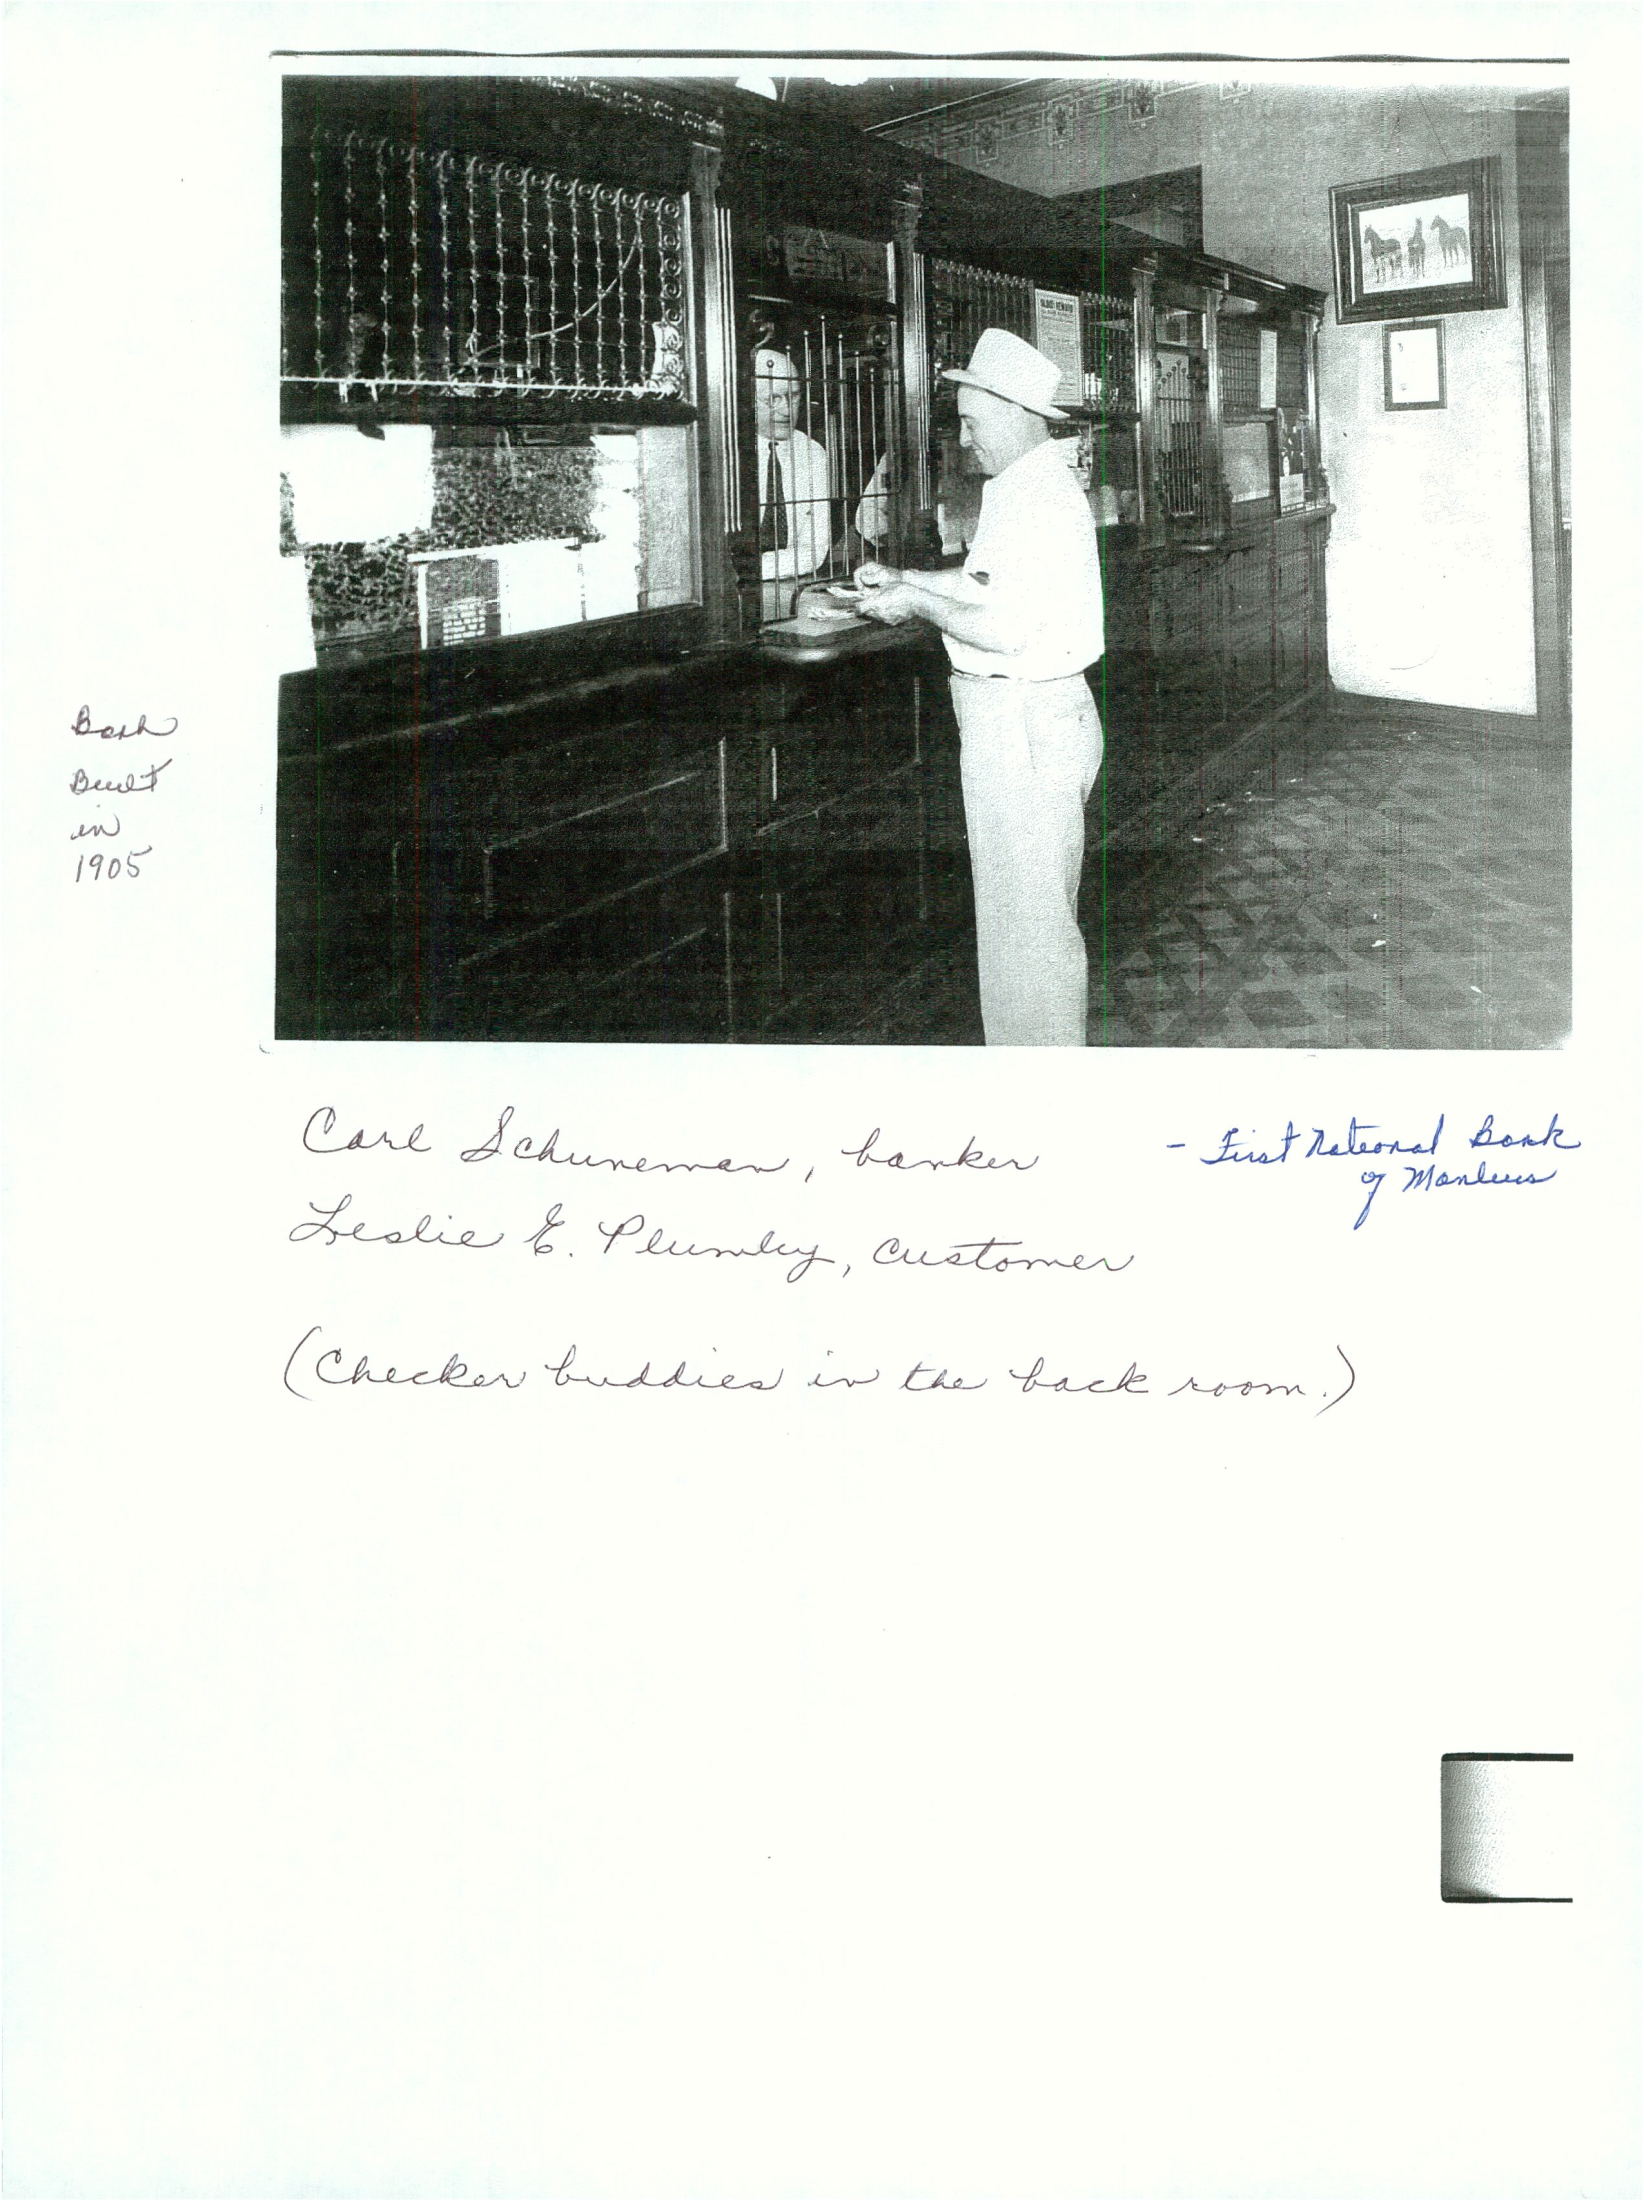 Bank
Built
in
1905
Carl Schuneman, banker
- First National Bank
of Manlius
Leslie E. Plumley, customer
(Checker buddies in the back room.)